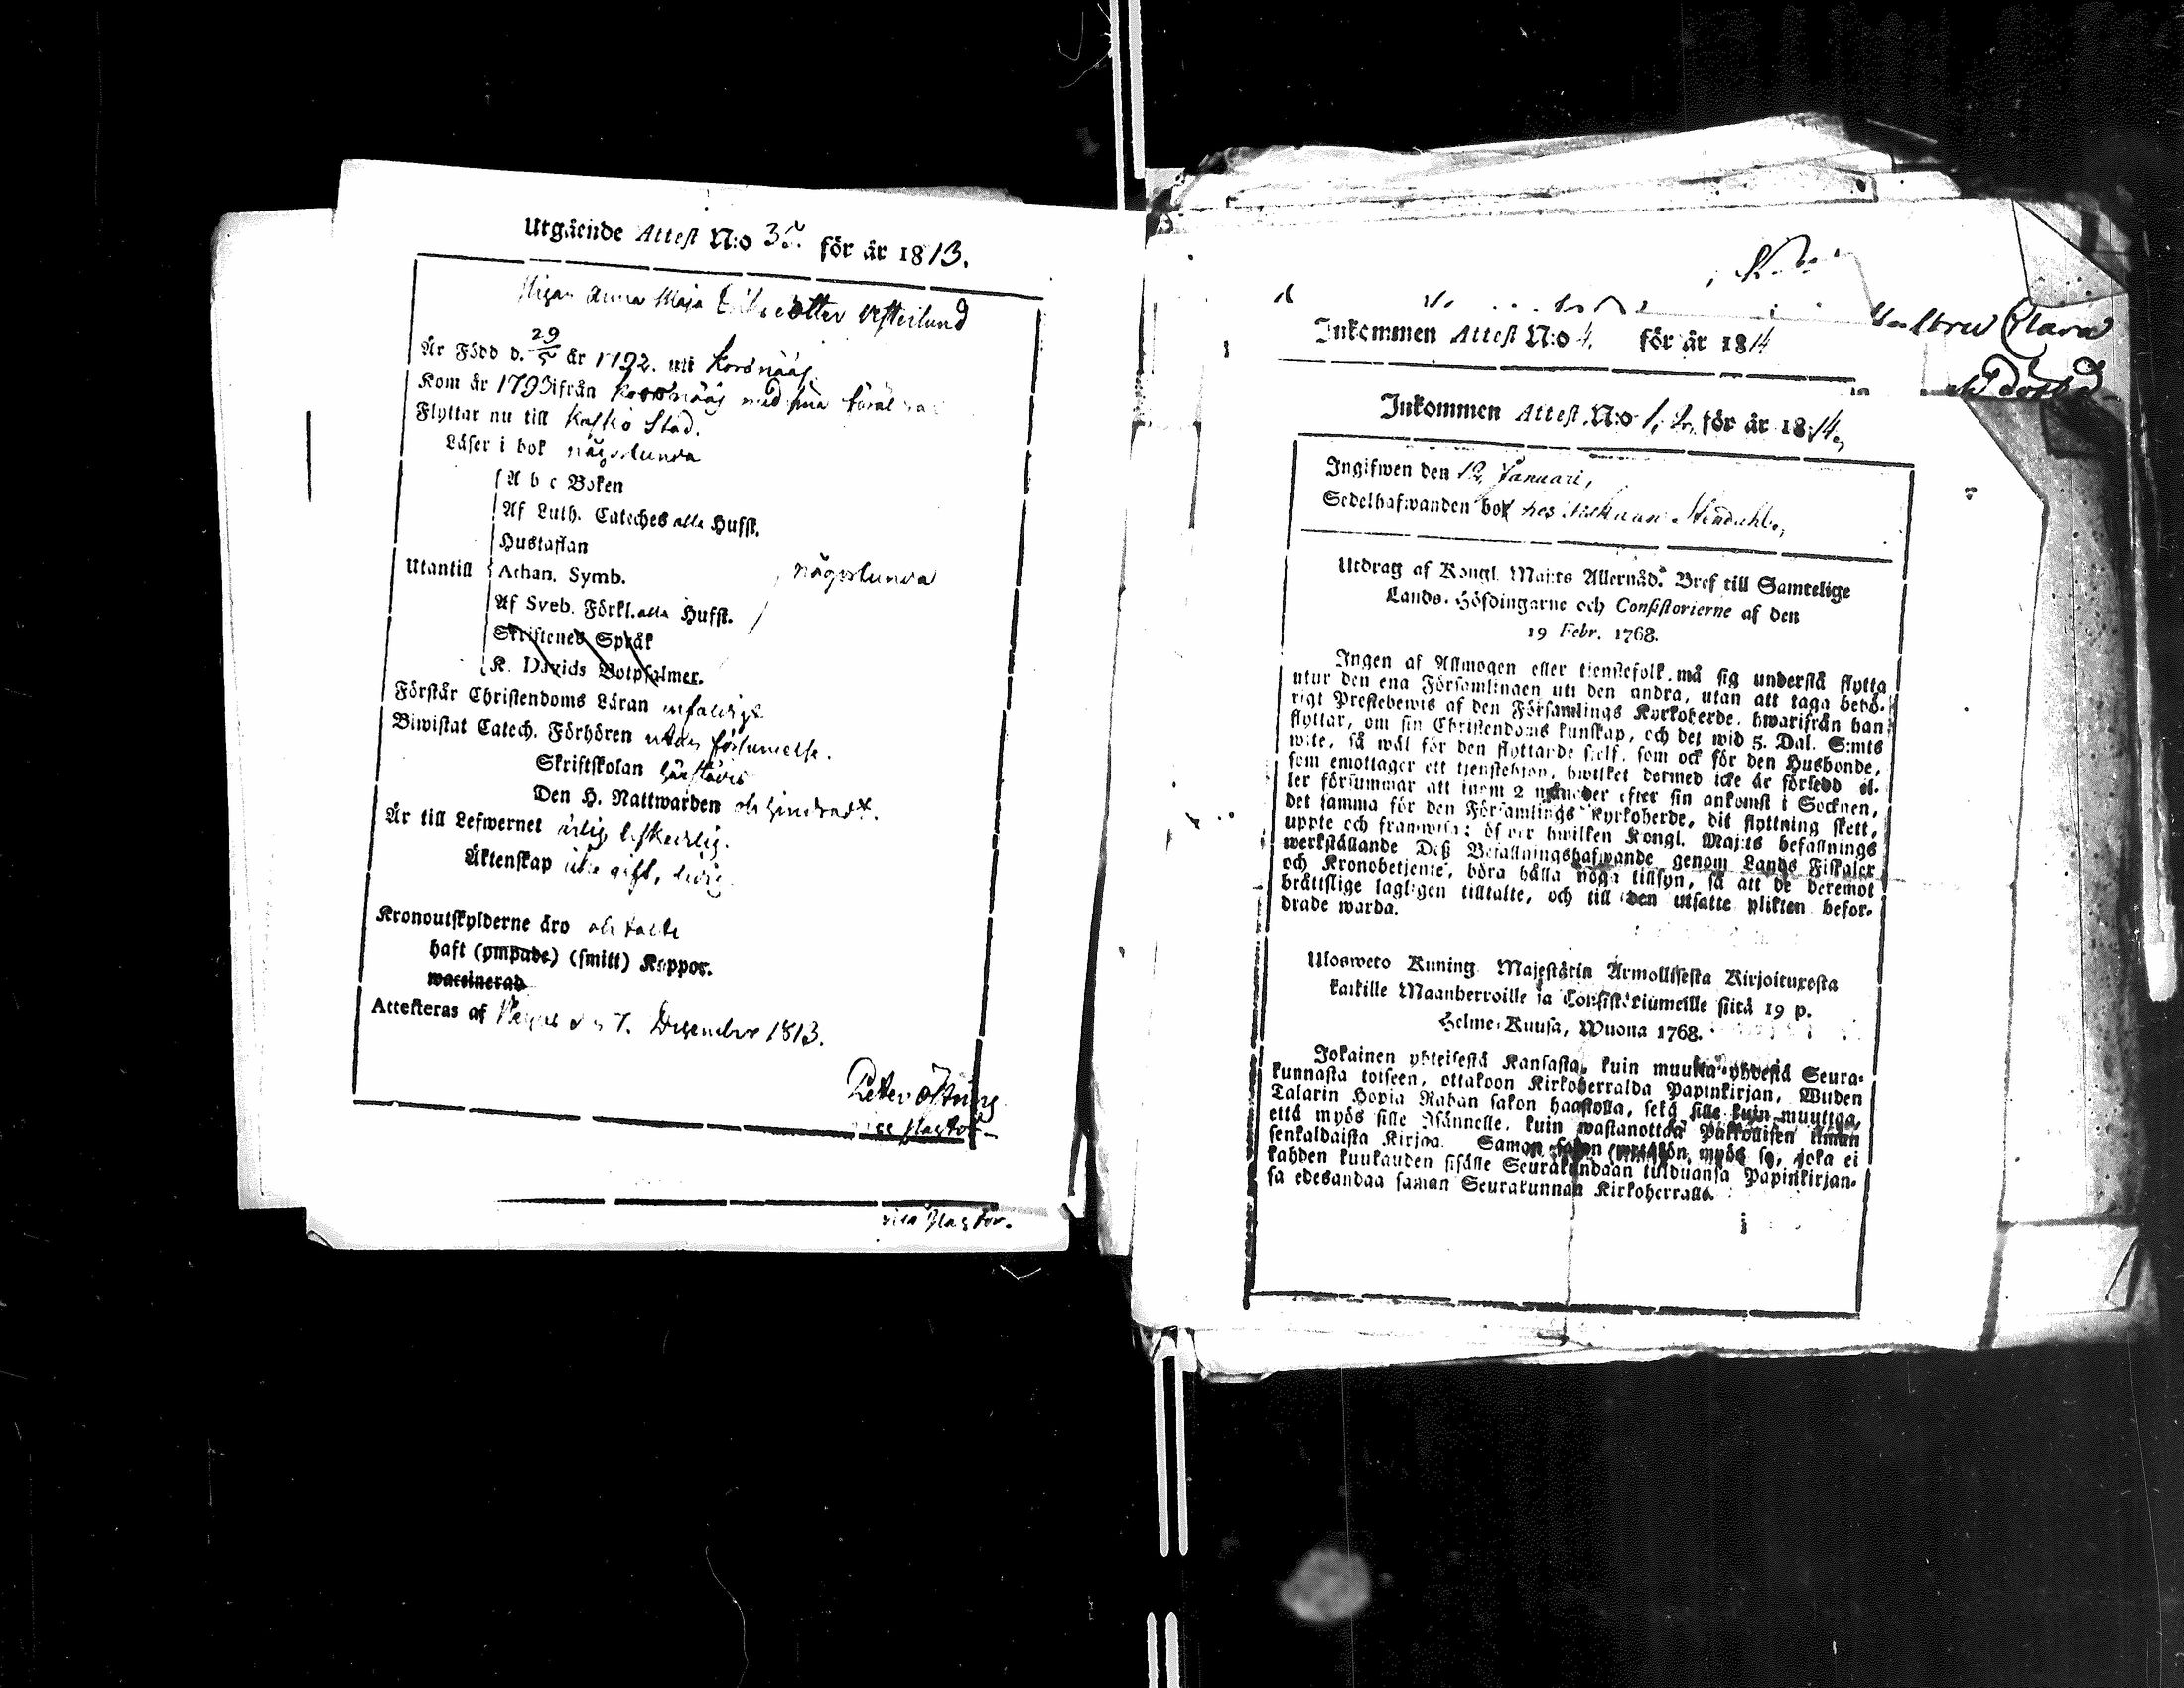 Utgående Attest N:o 35. för år 1813.
Pigan Anna Maja Ericsdotter Westerlund
Är Född d. 29/5 år 1792. uti Korsnääs
Kom år 1793 ifrån Korsnääs med sina föräldrar
Flyttar nu till Kaskö Stad.
Läser i bok någorlunda
A b c Boken
Af Luth. Cateches alla Hufst.
Hustaflan
Utantill Athan. Symb. någorlunda
Af Sveb. Förkl. alla Hufst.
Skriftenes Språk
K. Davids Botpsalmer.
Förstår Christendoms Läran enfaldigt
Biwistat Catech. Förhören utan försummelse.
Skriftskolan härstädes
Den H. Nattwarden ohindradt.
Är till Lefwernet ärlig beskedlig.
Äktenskap icke gift, ledig
Kronoutskylderne äro
haft (ympade) (smitt) Koppor.
waccinerad
Attesteras af den 7. December 1813.
Peter Östring
vice Pastor
vice Pastor.
Inkommen Attest N:o 4. för år 1814
Clara
Inkommen Attest. N:o 1, 2, för år 1814,
Ingifwen den 12 Januari,
Sedelhafwanden bor hos Stendahl,
Utdrag af Kongl. Maj:ts Allernåd. Bref till Samtelige
Lands-Höfdingarne och Consistorierne af den
19 Febr. 1768.
Ingen af Allmogen eller tjenstefolk må sig understå flytta
utur den ena Församlingen uti den andra, utan att taga behö-
rigt Prestebewis af den Församlings Kyrkoherde, hwarifrån han
flyttar, om sin Christendoms kunskap, och det wid 5. Dal. S:mts
wite, så wäl för den flyttande sielf, som ock för den Husbonde,
som emottager ett tjenstehjon, hwilket dermed icke är försedd el-
ler försummar att inom 2 månader efter sin ankomst i Socknen,
det samma för den Församlings Kyrkoherde, dit flyttning skett,
uppte och framwisa; öfwer hwilken Kongl. Maj:ts befallnings
werkställande Deß Befallningshafwande genom Lands Fiskaler
och Kronobetjente, böra hålla noga tillsyn, så att de deremot
brättslige lagligen tilltalte, och till den utsatte plikten befor-
drade warda.
Ulosweto Kuning. Majestätin Armollisesta Kirjoituxesta
kaikille Maanherroille ja Consistoriumeille siitä 19 p.
Helme-Kuusa, Wuona 1768.
Jokainen yhteisestä Kansasta, kuin muutta yhdestä Seura-
kunnasta toiseen, ottakoon Kirkoherralda Papinkirjan, Wiiden
Talarin Hopia Rahan sakon haastolla, sekä sille kuin muuttaa,
että myös sille Isännelle, kuin wastanottaa Palkollisen ilman
senkaldaista Kirjaa. Saman sakon wetäkön myös se, joka ei
kahden kuukauden sisälle Seurakundaan tulduansa Papinkirjan-
sa edesandaa saman Seurakunnan Kirkoherralle.